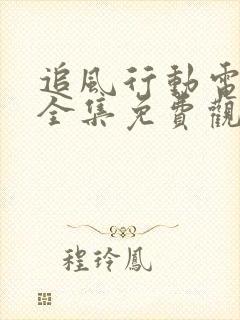 追風行動電
全集免費觀
程玲鳳